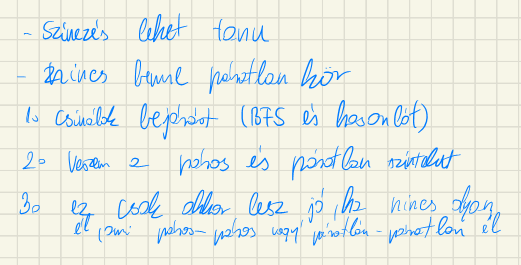 - Színezés lehet tanu
- nincs benne páratlan kör
1. csinálok bejárást (BFS és hasonlót)
2. Veszem a páros és páratlan szinteket
3. ez csak akkor lesz jó, ha nincs olyan
él, ami páros-páros vagy páratlan-páratlan él